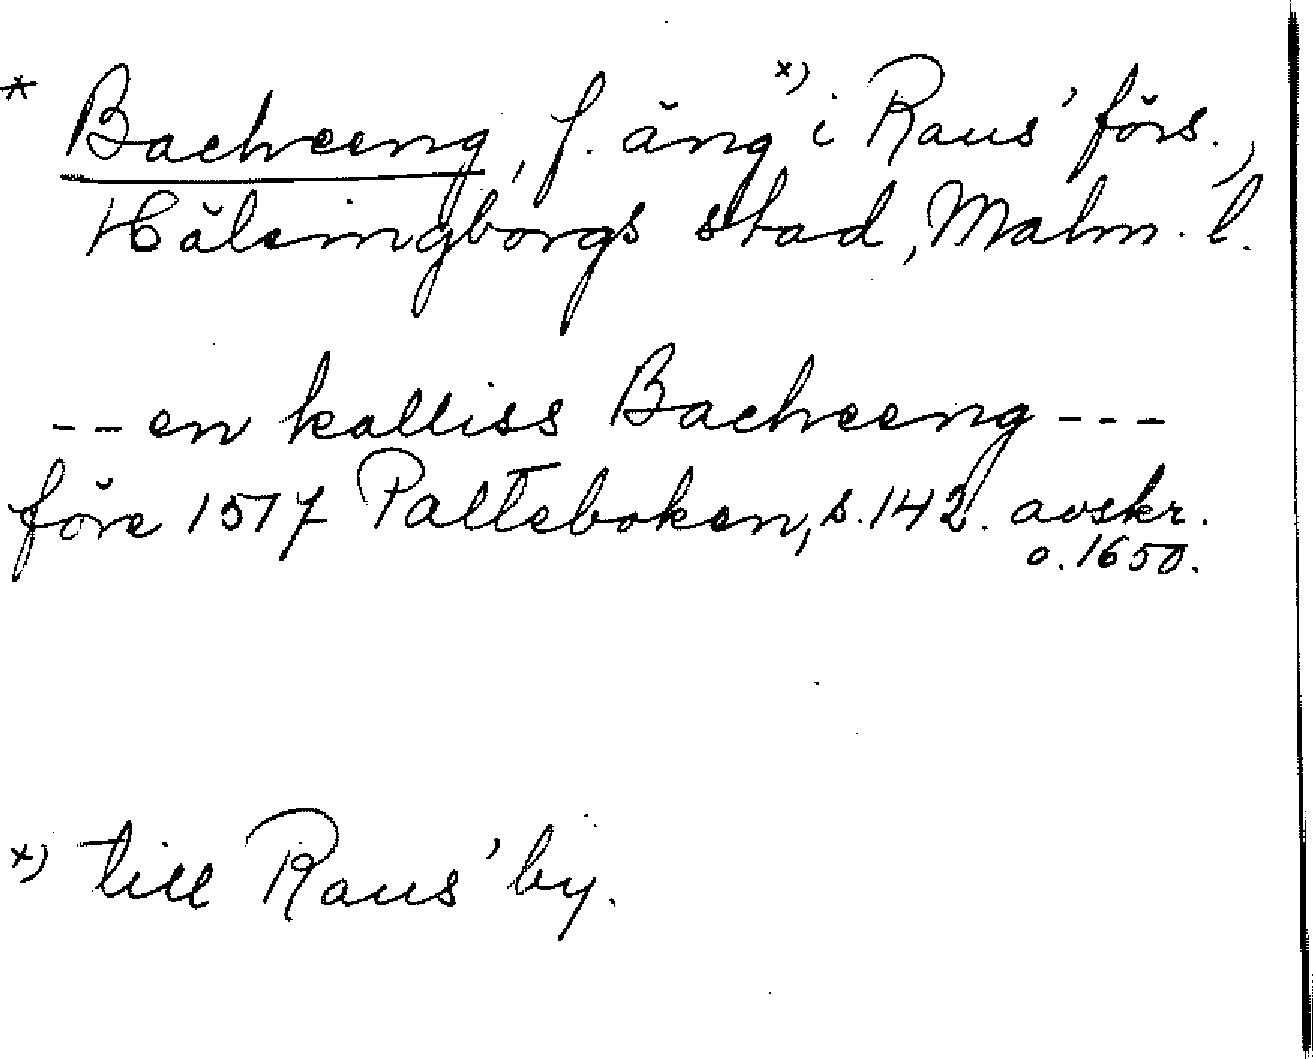 * Bacheeng, f. äng x) i Raus' förs.,
Hälsingborgs stad, Malm. l.
-- en kalliss Bacheeng ---
före 1517 Palteboken, s. 142. avskr.
o. 1650.
x) till Raus' by.